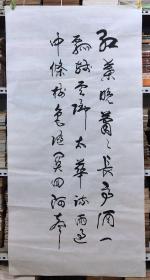 红葉晚蕭々長亭酒一
瓢殘雲歸太華疏雨過
中條樹色随関迥河聲